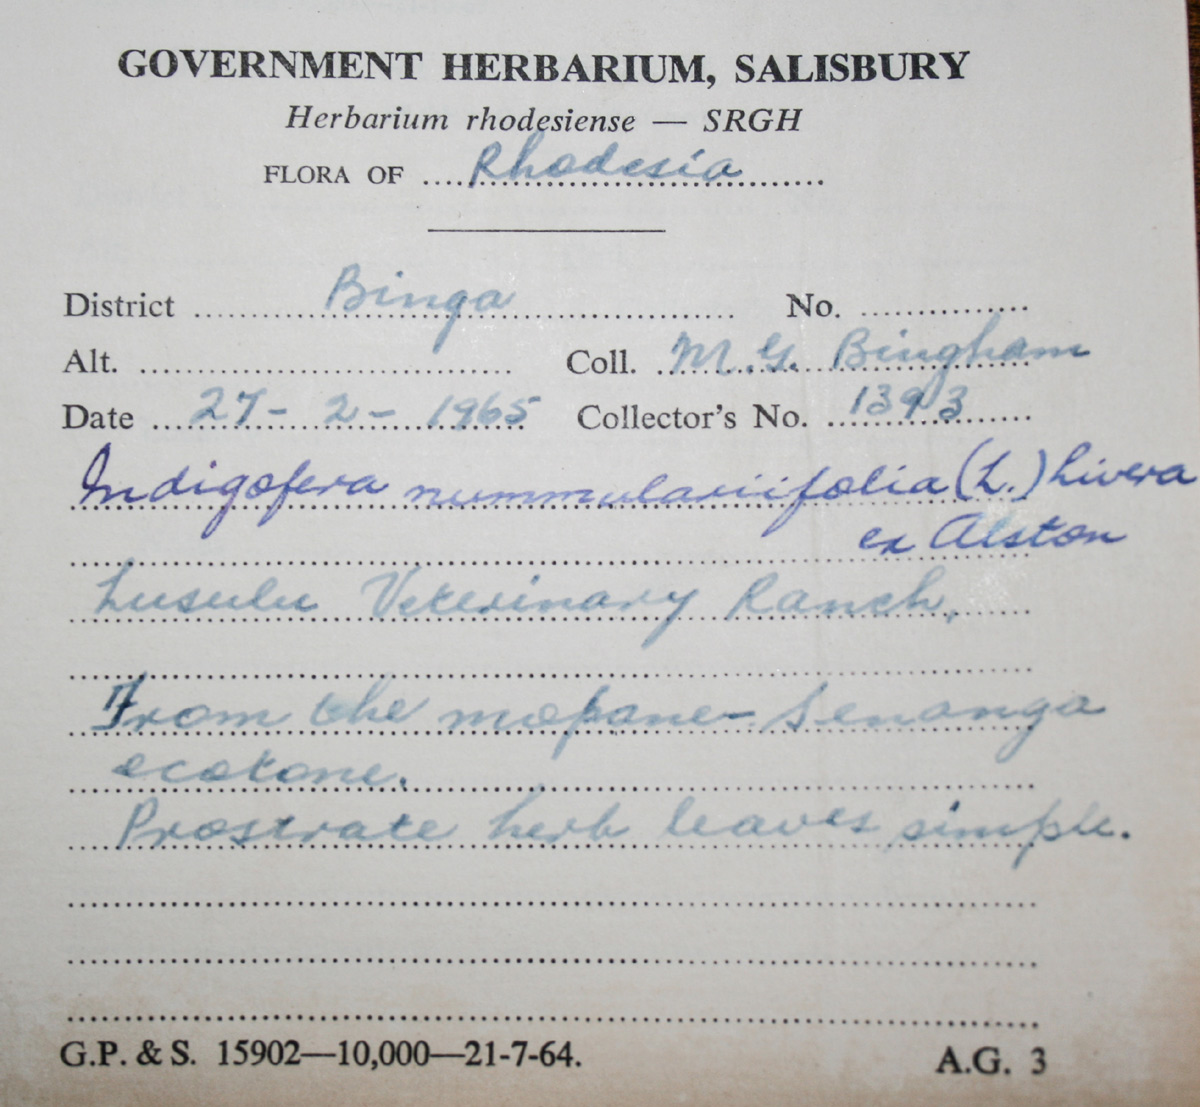 GOVERNMENT HERBARIUM, SALISBURY
Herbarium rhodesiense — SRGH
FLORA OF Rhodesia
District Binga No.
Alt. Coll. M.G. Bingham
Date 27-2-1965 Collector's No. 1393
Indigofera nummulariifolia (L.) Livera
ex Alston
Lusulu Veterinary Ranch,
From the mopane-Senanga
ecotone.
Prostrate herb leaves simple.
G.P. & S. 15902—10,000—21-7-64. A.G. 3